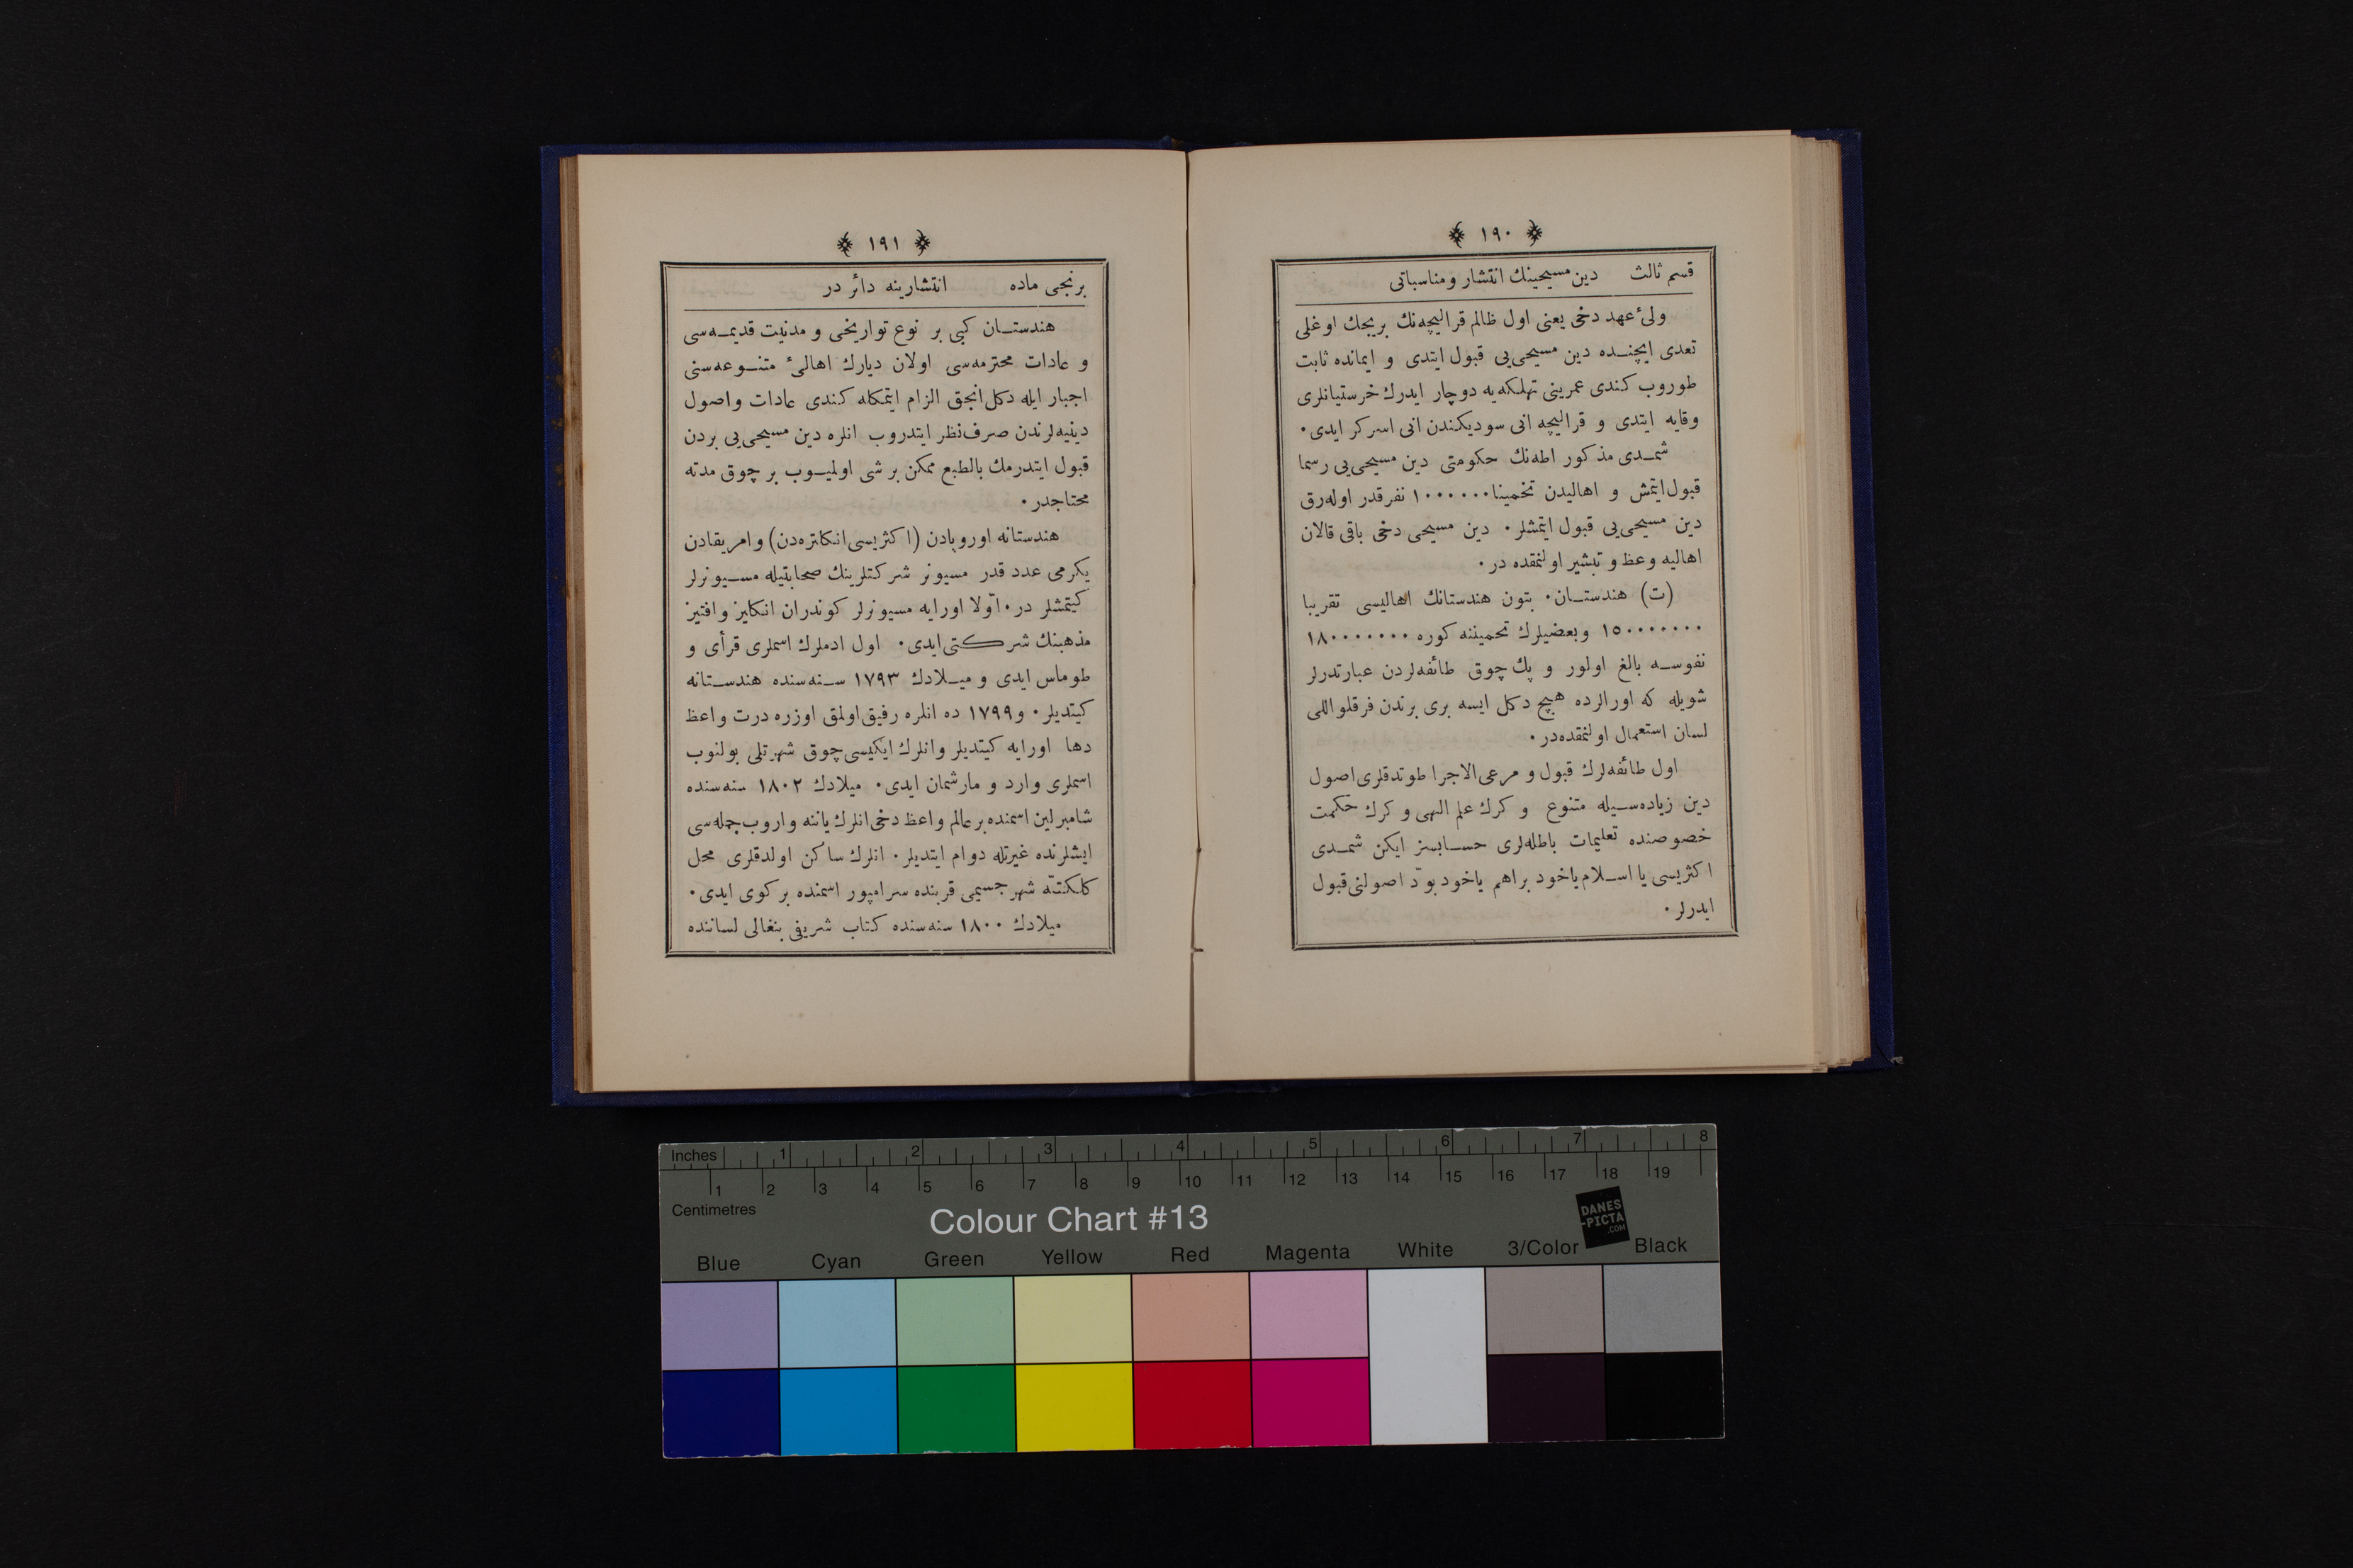 ١٩٠
قسم ثالث دين مسيحينك انتشار ومناسباتى
ولئ عهد دخى يعنى اول ظالم قراليچه‌نك بريجك اوغلى
تعدى ايچنـده دين مسيحى‌يى قبول ايتدى و ايمانده ثابت
طوروب كندى عمرينى تهلكه‌يه دوچار ايدرك خرستيانلرى
وقايه ايتدى و قراليچه انى سوديكندن انى اسركر ايدى.
شمـدى مذكور اطه‌نك حكومتى دين مسيحى‌يى رسما
قبول ايتمش و اهاليدن تخمينا ١٠٠٠٠٠٠ نفر قدر اوله‌رق
دين مسيحى‌يى قبول ايتمشلر. دين مسيحى دخى باقى قالان
اهاليه وعظ و تبشير اولنمقده در.
(ت) هندستـان. بتون هندستانك اهاليسى تقريبا
١٥٠٠٠٠٠٠٠ وبعضيلرك تخميننه كوره ١٨٠٠٠٠٠٠٠
نفوسـه بالغ اولور و پك چوق طائفه‌لردن عبارتدرلر
شويله كه اورالرده هيچ دكل ايسه برى برندن فرقلو اللى
لسان استعمال اولنمقده‌در.
اول طائفه‌لرك قبول و مرعى‌الاجرا طوتدقلرى اصول
دين زياده‌سـيله متنوع و كرك علم الهى و كرك حكمت
خصوصنده تعليمات باطله‌لرى حسـابسز ايكن شمـدى
اكثريسى يا اسـلام ياخود براهم ياخود بودّ اصولنى قبول
ايدرلر.
١٩١
برنجى ماده انتشارينه دائر در
هندستـان كبى بر نوع تواريخى و مدنيت قديمـه‌سى
و عادات محترمه‌سى اولان ديارك اهالئ متنـوعه‌سنى
اجبار ايله دكل انجق الزام ايتمكله كندى عادات و اصول
دينيه‌لرندن صرف‌نظر ايتدروب انلره دين مسيحى‌يى بردن
قبول ايتدرمك بالطبع ممكن بر شى اولميـوب بر چوق مدته
محتاجدر.
هندستانه اوروپادن (اكثريسى انكلتره‌دن) و امريقادن
يكرمى عدد قدر مسيونر شركتلرينك صحابتيله مسـيونرلر
كيتمشلر در. اوّلا اورايه مسيونرلر كوندران انكليز وافتيز
مذهبنك شركتى ايدى. اول ادملرك اسملرى قرأى و
طوماس ايدى و ميـلادك ١٧٩٣ سـنه‌سنده هندسـتانه
كيتديلر. و ١٧٩٩ ده انلره رفيق اولمق اوزره درت واعظ
دها اورايه كيتديلر وانلرك ايكيسى چوق شهرتلى بولنوب
اسملرى وارد و مارشمان ايدى. ميلادك ١٨٠٢ سنه‌سنده
شامبرلين اسمنده بر عالم واعظ دخى انلرك ياننه واروب جمله‌سى
ايشلرنده غيرتله دوام ايتديلر. انلرك ساكن اولدقلرى محل
كلكتـّه شهر جسيمى قربنده سرامپور اسمنده بر كوى ايدى.
ميلادك ١٨٠٠ سنه‌سنده كتاب شريفى بنغالى لساننده
Inches 1 2 3 4 5 6 7 8
1 2 3 4 5 6 7 8 9 10 11 12 13 14 15 16 17 18 19
Centimetres
Colour Chart #13
DANES
-PICTA
.COM
Blue Cyan Green Yellow Red Magenta White 3/Color Black